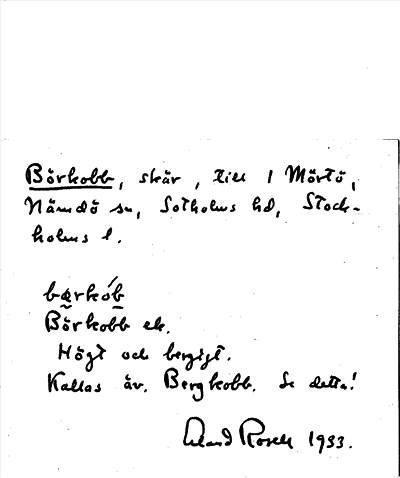 Börkobb, skär, till 1 Mörtö,
Nämdö sn, Sotholms hd, Stock-
holms l.
bœrkób
Börkobb ek.
Högt och bergigt.
Kallas äv. Bergkobb. Se detta!
Rosell 1933.